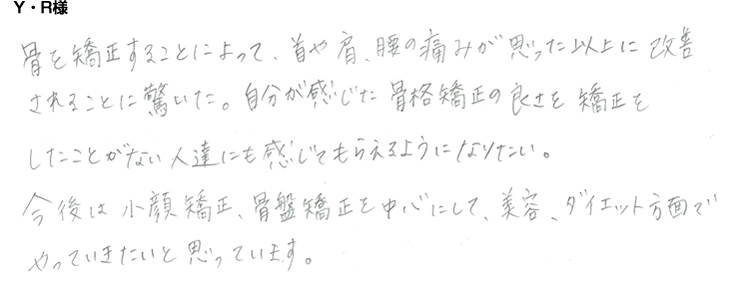 Y・R様
骨を矯正することによって、首や肩、腰の痛みが思った以上に改善
されることに驚いた。自分が感じた骨格矯正の良さを矯正を
したことがない人達にも感じてもらえるようになりたい。
今後は小顔矯正、骨盤矯正を中心にして、美容、ダイエット方面で
やっていきたいと思っています。